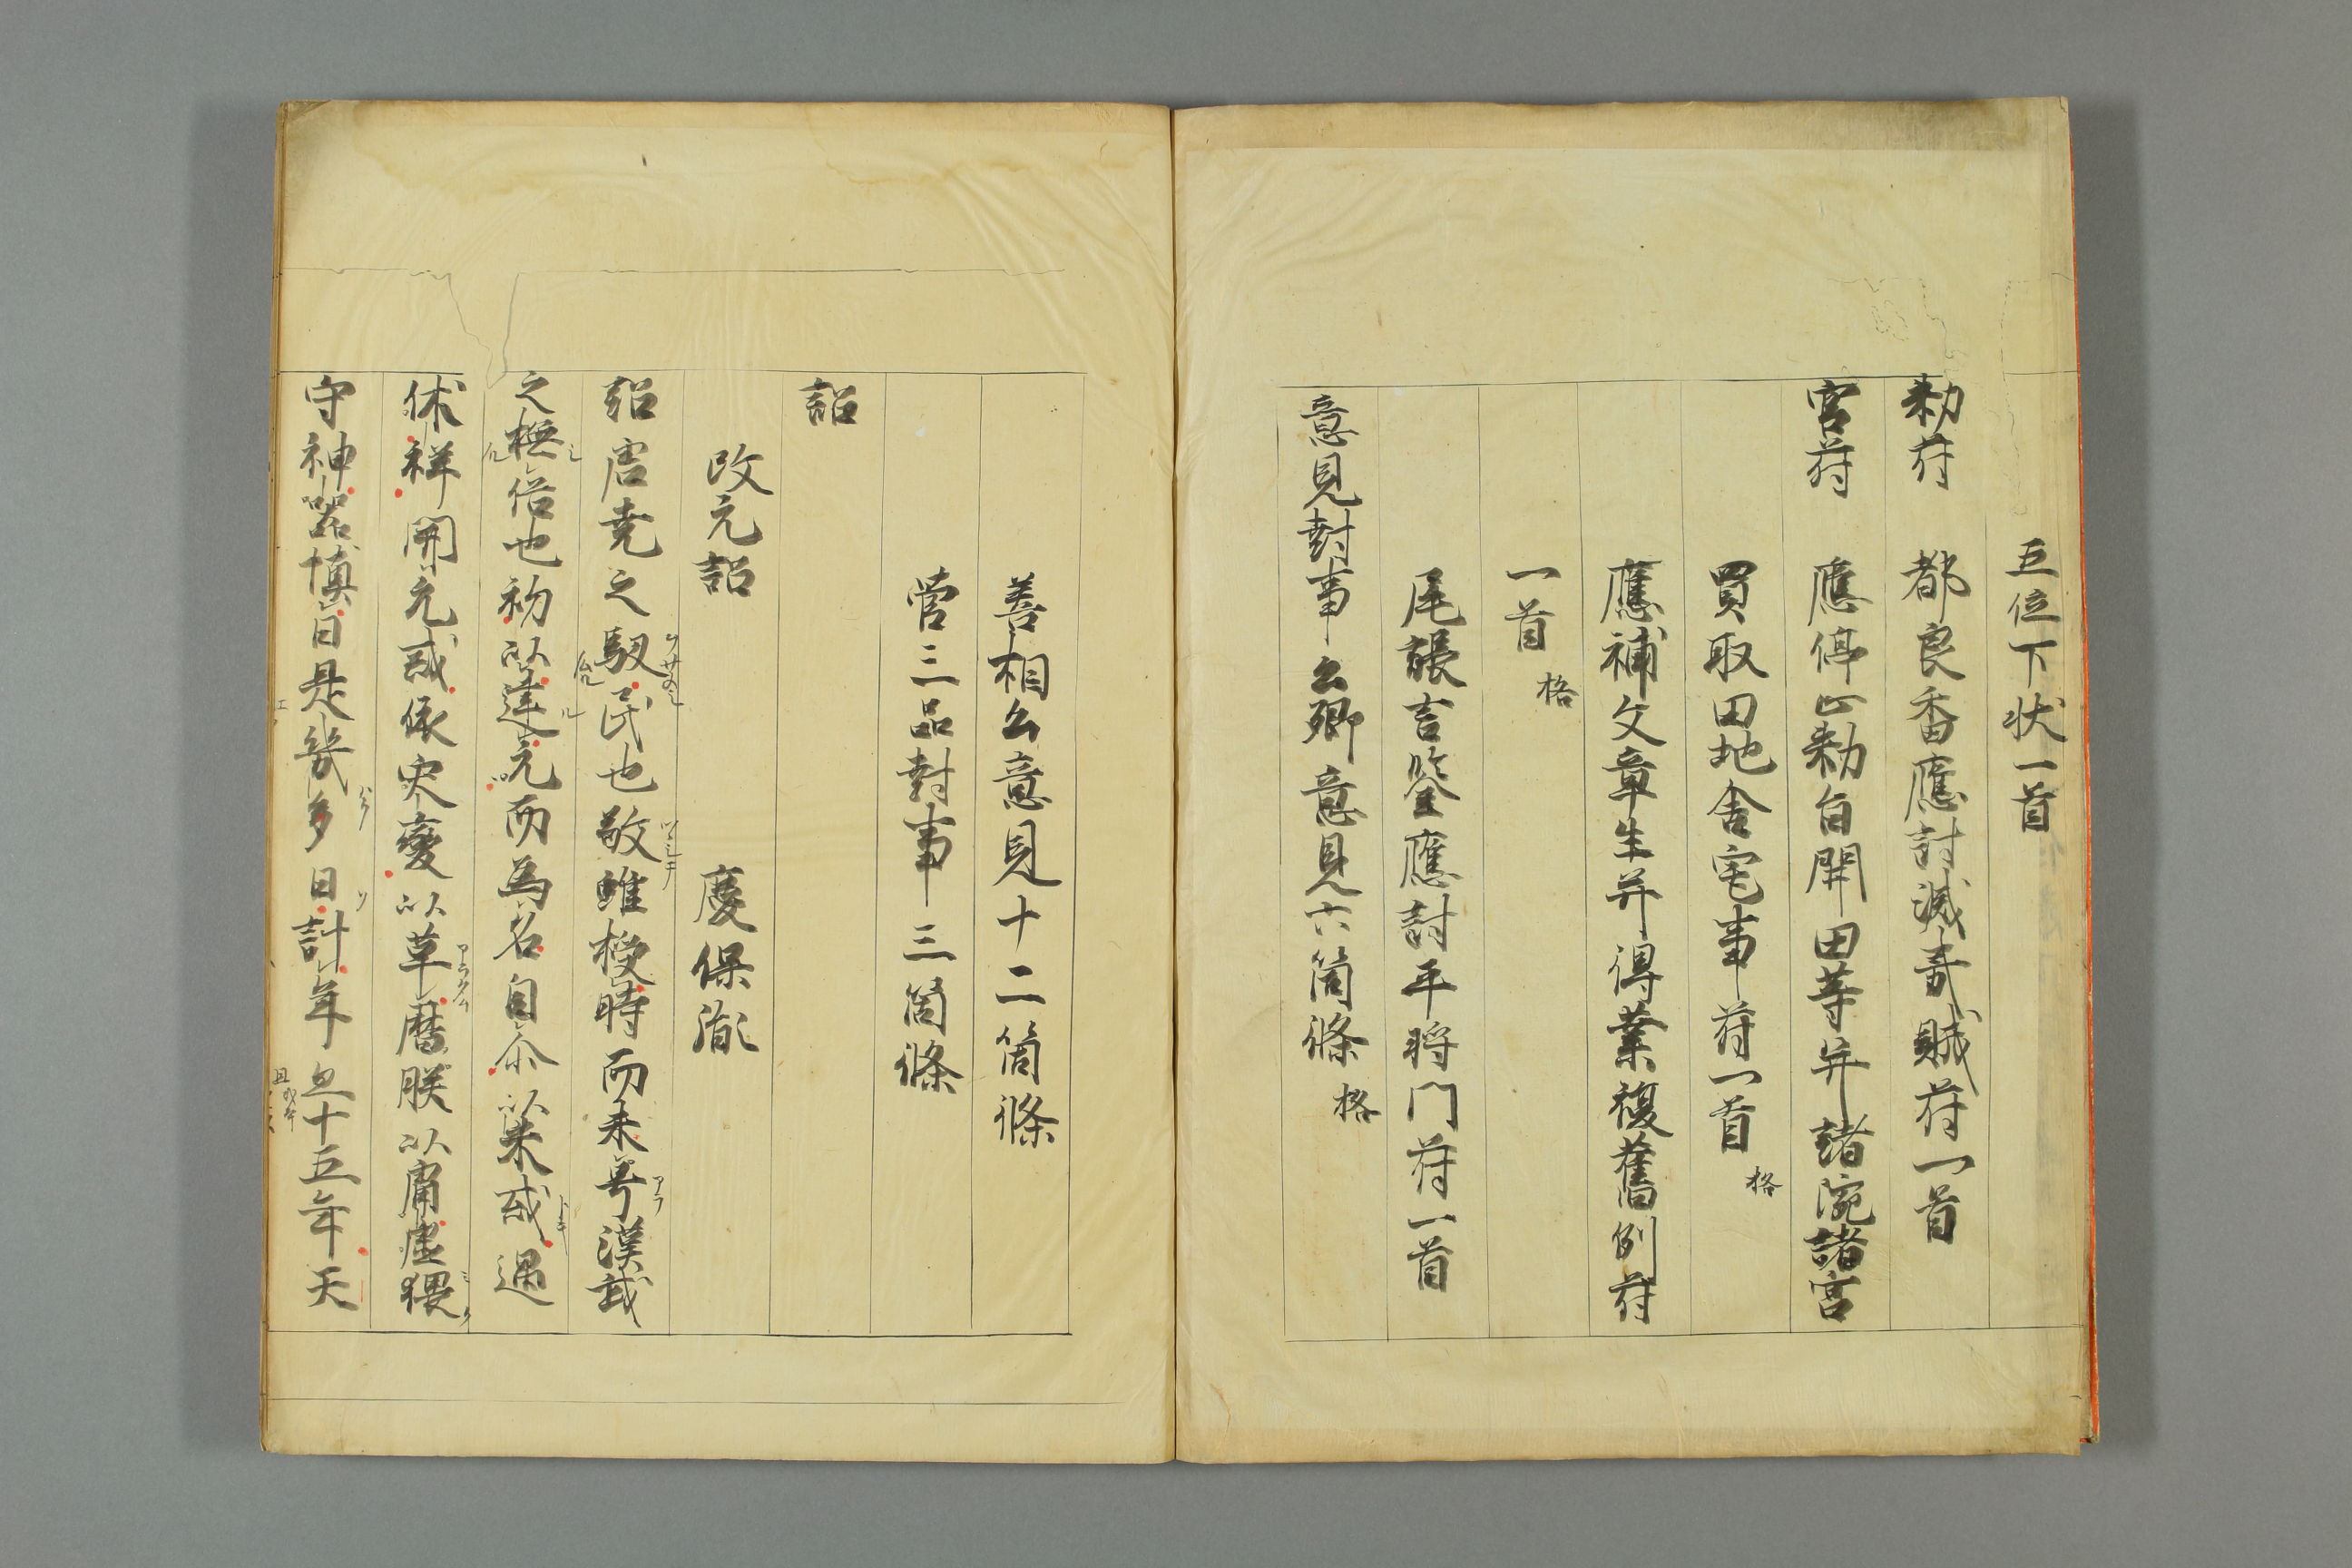 五位下状一首
勅符　都良香應討滅夷賊符一首
官符　應停止勅旨開田等并諸院諸宮
買取田地舎宅事符一首 格
應補文章生并得業復舊例符
一首 格
尾張言鑒應討平将門符一首
意見封事　公卿意見六箇條 格
善相公意見十二箇條
菅三品封事三箇條
詔
改元詔　慶保胤
詔唐堯之馭民也敬雖授時而未号漢武
之撫俗也初以建元而為名自尒以来或遇
休祥開元或依灾變以草暦朕以庸虚猥
守神器慎日是幾多日計年且十五年天